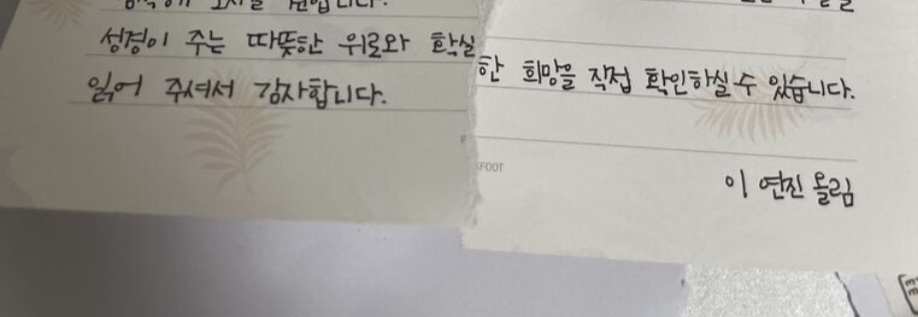 성경이 주는 따뜻한 위로와 확실한 희망을 직접 확인하실 수 있습니다.
읽어 주셔서 감사합니다.
KFOOT
이 연진 올림